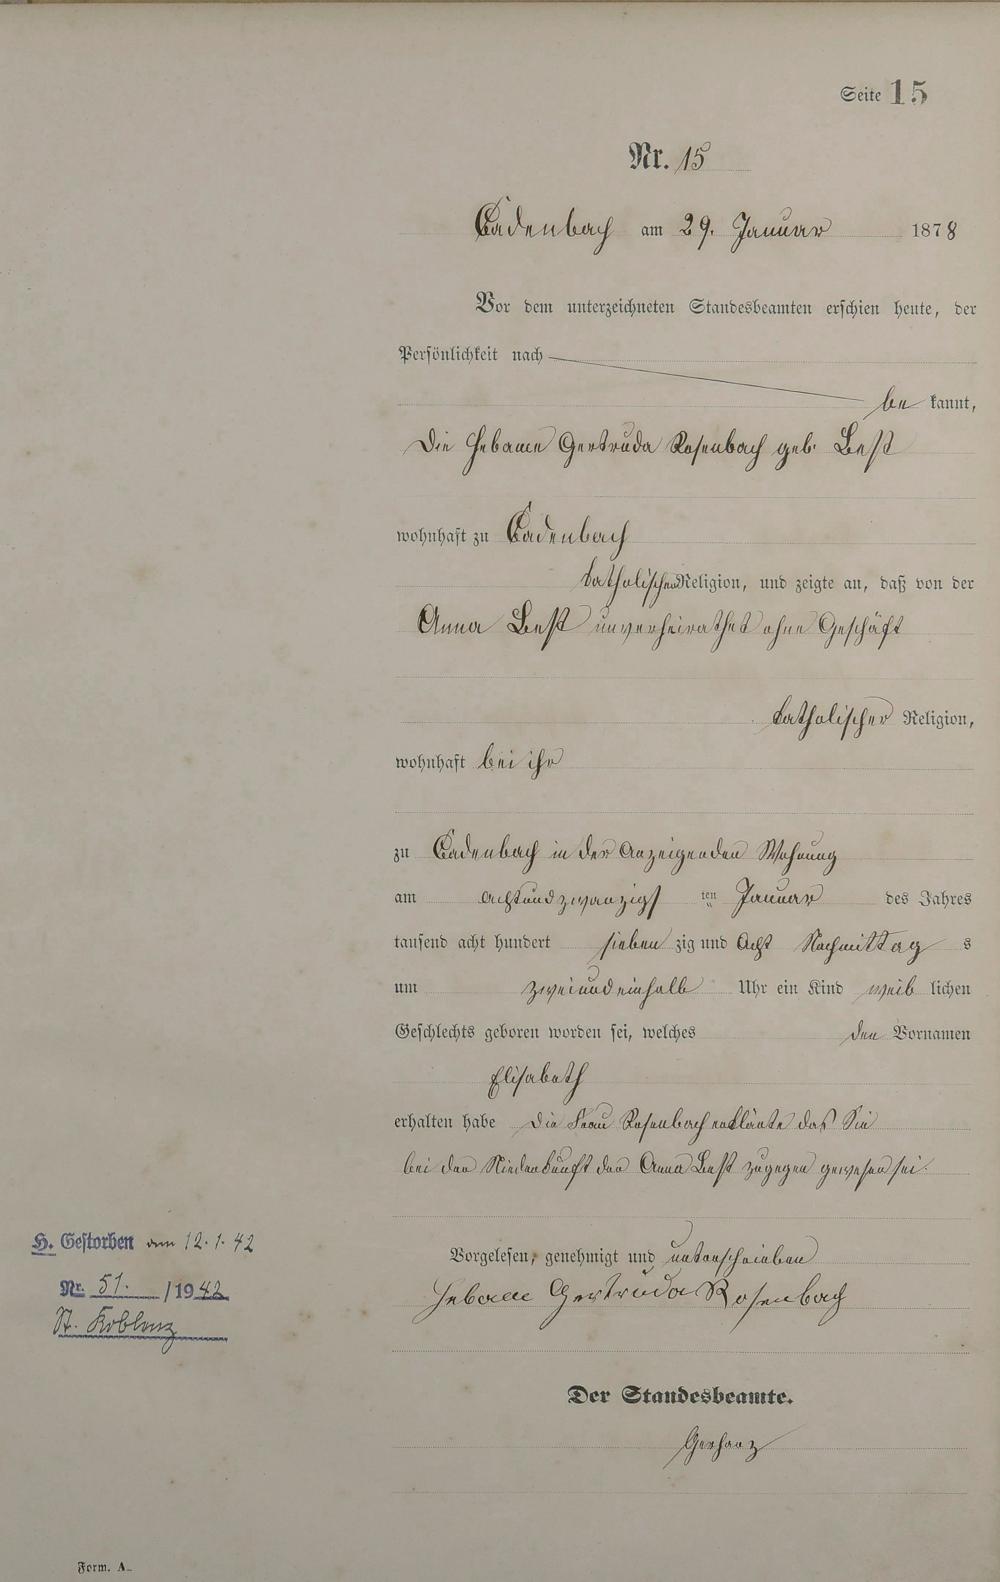 Seite 15
Nr. 15
Cadenbach am 29. Januar 1878
Vor dem unterzeichneten Standesbeamten erschien heute, der
Persönlichkeit nach
be kannt,
die Hebame Gertruda Rosenbach geb. Best
wohnhaft zu Cadenbach
katholischer Religion, und zeigte an, daß von der
Anna Best unverheirathet ohne Geschäft
katholischer Religion,
wohnhaft bei ihr
zu Cadenbach in der Anzeigenden Wohnung
am achtundzwanzigs ten Januar des Jahres
tausend acht hundert sieben zig und Acht Nachmittag s
um zweiundeinhalb Uhr ein Kind weib lichen
Geschlechts geboren worden sei, welches den Vornamen
Elisabeth
erhalten habe die Frau Rosenbach erklärte das Sie
bei der Niederkunft der Anna Best zugegen gewesen sei.
Vorgelesen, genehmigt und unterschrieben
Hebame Gertruda Rosenbach
Der Standesbeamte.
Gerharz
H. Gestorben am 12.1.42
Nr. 51. /1942
St. Koblenz
Form. A.